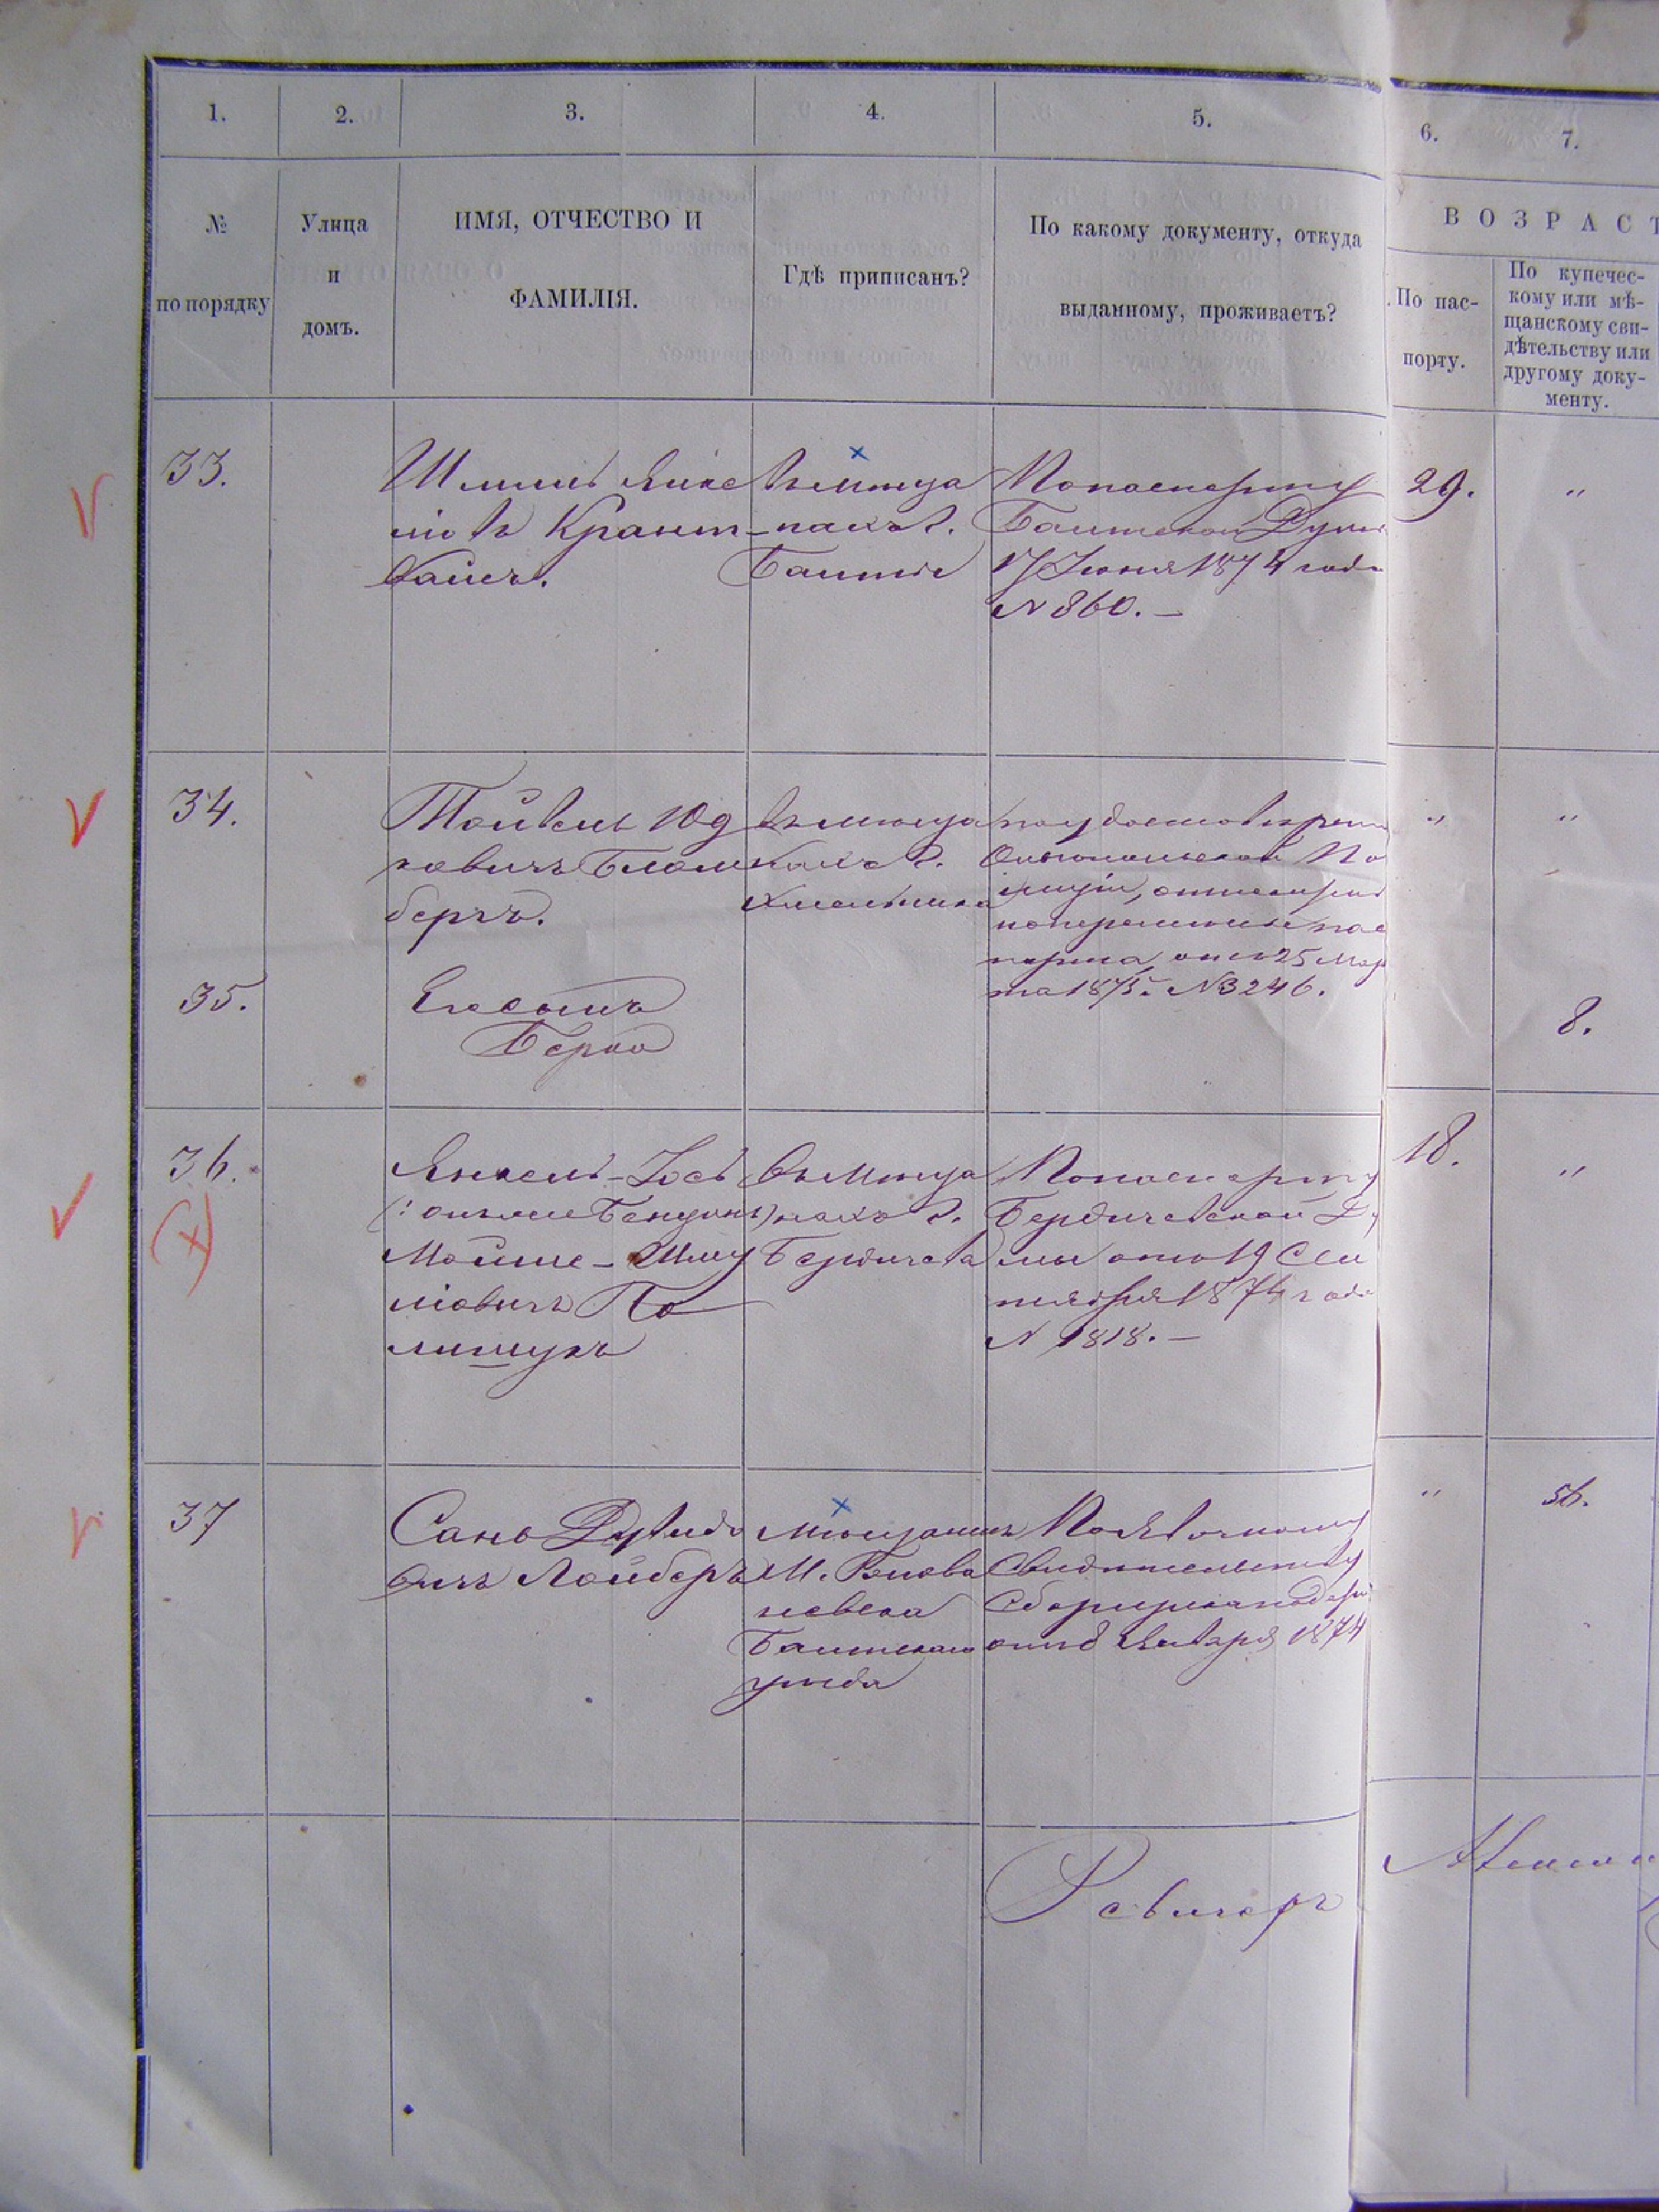 1. 2. 3. 4. 5. 6. 7.
№ по порядку
Улица и домъ.
ИМЯ, ОТЧЕСТВО И
ФАМИЛІЯ.
Гдѣ приписанъ?
По какому документу, откуда
выданному, проживаетъ?
ВОЗРАСТ
По пас-
порту.
По купечес-
кому или мѣ-
щанскому сви-
дѣтельству или
другому доку-
менту.
33.
Крант-
Въ мѣща
нахъ г.
Балтѣ
По паспорту
Балтской Думы
17 Іюня 1874 года
N 860. —
29.
"
34.
Тойвель Юд
ковичъ Блюм
бергъ.
въ мѣща
нахъ г.
Хмельника
по удостовѣрен
Ольгопольской По
лиціи,
пас
порта, отъ 25 Мар
та 1875 г. N 3246.
"
"
35.
Его сынъ
Берко
8.
36.
Янкель-Іось
(: онъ же Бенціонъ)
Мойше-Шму
ліовичъ По
лищукъ
Въ мѣща
нахъ г.
Бердичева
По паспорту
Бердичевской Ду
мы отъ 19 Сен
тября 1874 года
N 1818. —
18.
"
37
Мѣщанинъ
М.
Балтскаго
уѣзда
Свидѣтельству
отъ 8 Января 1874
"
56.